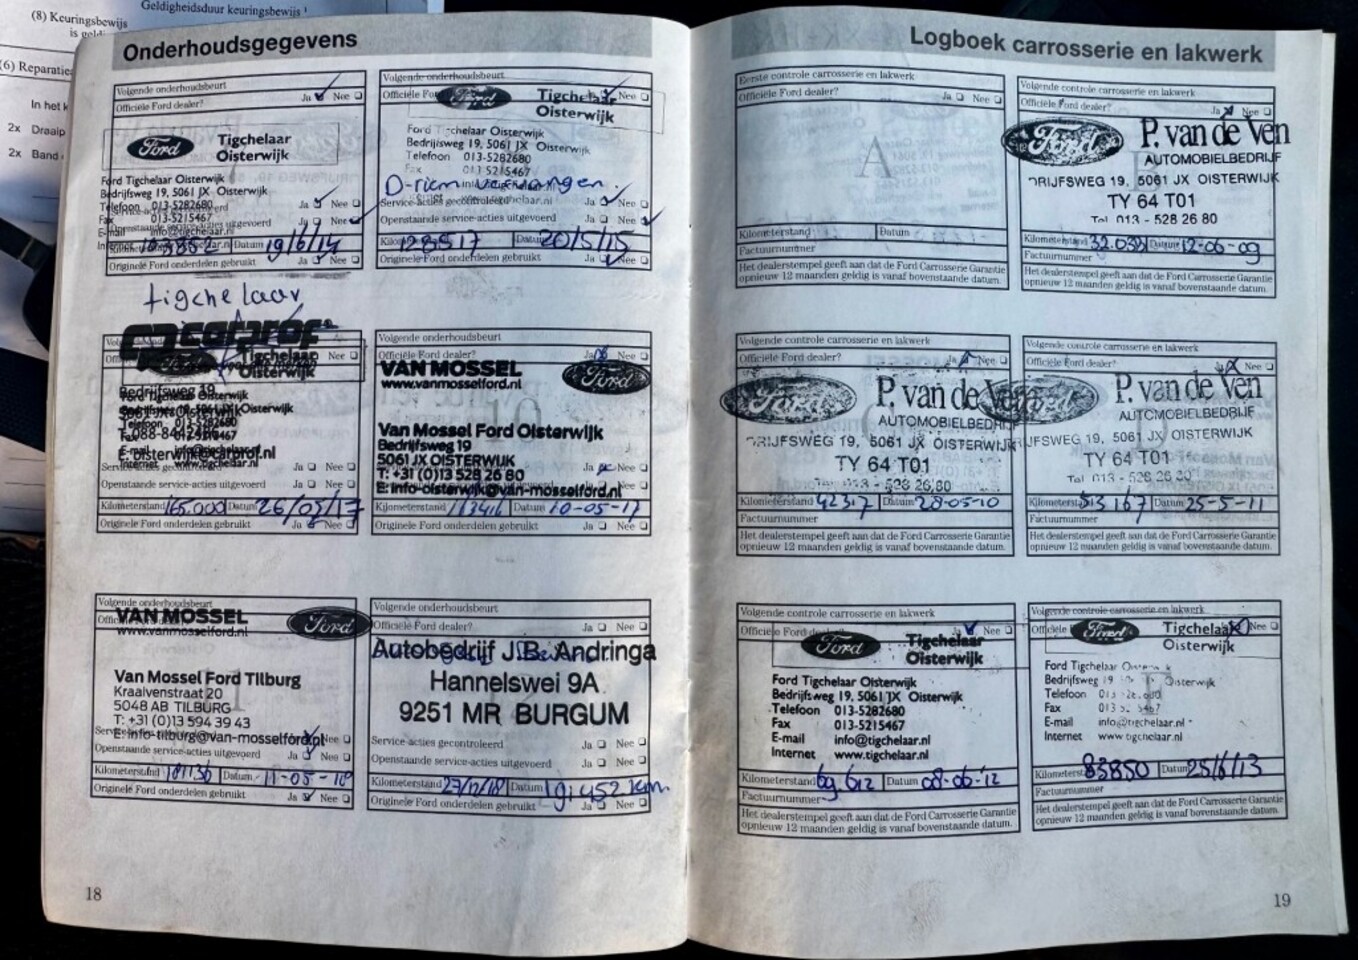 Geldigheidsduur keuringsbewijs
(8) Keuringsbewijs
is geldi
(6) Reparatie
In het k
2x Draaip
2x Band
Onderhoudsgegevens
Volgende onderhoudsbeurt
Officiële Ford dealer? Ja Nee
Ford
Tigchelaar
Oisterwijk
Ford Tigchelaar Oisterwijk
Bedrijfsweg 19, 5061 JX Oisterwijk
Telefoon 013-5282680
Fax 013-5215467
E-mail info@tigchelaar.nl
Ja Nee
Ja Nee
103852 Datum 19/6/14
Originele Ford onderdelen gebruikt Ja Nee
Volgende onderhoudsbeurt
Ford
Tigchelaar
Oisterwijk
Nee
Ford Tigchelaar Oisterwijk
Bedrijfsweg 19, 5061 JX Oisterwijk
Telefoon 013-5282680
Fax 013 5215467
D-riem vervangen.
Service-acties gecontroleerd Ja Nee
Openstaande service-acties uitgevoerd Ja Nee
128517 Datum 20/5/15
Originele Ford onderdelen gebruikt Ja Nee
tigchelaar
carprof
Tigchelaar
Oisterwijk
Nee
Bedrijfsweg 19
E: oisterwijk@carprof.nl
Internet www.tigchelaar.nl
Ja Nee
Openstaande service-acties uitgevoerd Ja Nee
Kilometerstand 165.000 Datum 26/05/17
Originele Ford onderdelen gebruikt Ja Nee
Volgende onderhoudsbeurt
Officiële Ford dealer? Ja Nee
VAN MOSSEL
www.vanmosselford.nl
Ford
Van Mossel Ford Oisterwijk
Bedrijfsweg 19
5061 JX OISTERWIJK
T: +31 (0)13 528 26 80
E: info-oisterwijk@van-mosselford.nl
Ja Nee
Kilometerstand Datum 10-05-17
Originele Ford onderdelen gebruikt Ja Nee
Volgende onderhoudsbeurt
VAN MOSSEL
www.vanmosselford.nl
Ford
Van Mossel Ford Tilburg
Kraaivenstraat 20
5048 AB TILBURG
T: +31 (0)13 594 39 43
E: info-tilburg@van-mosselford.nl
Openstaande service-acties uitgevoerd Ja Nee
Kilometerstand 181136 Datum 11-05-18
Originele Ford onderdelen gebruikt Ja Nee
Volgende onderhoudsbeurt
Officiële Ford dealer? Ja Nee
Autobedrijf J.B. Andringa
Hannelswei 9A
9251 MR BURGUM
Service-acties gecontroleerd Ja Nee
Openstaande service-acties uitgevoerd Ja Nee
Kilometerstand 27/12/18 Datum 191452 km
Originele Ford onderdelen gebruikt Ja Nee
18
Logboek carrosserie en lakwerk
Eerste controle carrosserie en lakwerk
Officiële Ford dealer? Ja Nee
A
Kilometerstand Datum
Factuurnummer
Het dealerstempel geeft aan dat de Ford Carrosserie Garantie
opnieuw 12 maanden geldig is vanaf bovenstaande datum.
Volgende controle carrosserie en lakwerk
Officiële Ford dealer? Ja Nee
Ford
P. van de Ven
AUTOMOBIELBEDRIJF
DRIJFSWEG 19, 5061 JX OISTERWIJK
TY 64 T01
Tel 013 - 528 26 80
Kilometerstand 32.038 Datum 12-06-09
Factuurnummer
Het dealerstempel geeft aan dat de Ford Carrosserie Garantie
opnieuw 12 maanden geldig is vanaf bovenstaande datum.
Volgende controle carrosserie en lakwerk
Officiële Ford dealer? Ja Nee
Ford
P. van de Ven
AUTOMOBIELBEDRIJF
DRIJFSWEG 19, 5061 JX OISTERWIJK
TY 64 T01
Kilometerstand 42317 Datum 28-05-10
Factuurnummer
Het dealerstempel geeft aan dat de Ford Carrosserie Garantie
opnieuw 12 maanden geldig is vanaf bovenstaande datum.
Volgende controle carrosserie en lakwerk
Officiële Ford dealer? Ja Nee
P. van de Ven
AUTOMOBIELBEDRIJF
IJFSWEG 19, 5061 JX OISTERWIJK
TY 64 T01
Tel 013 - 528 26 80
Kilometerstand 53167 Datum 25-5-11
Factuurnummer
Het dealerstempel geeft aan dat de Ford Carrosserie Garantie
opnieuw 12 maanden geldig is vanaf bovenstaande datum.
Volgende controle carrosserie en lakwerk
Officiële Ford dealer? Ja Nee
Ford
Tigchelaar
Oisterwijk
Ford Tigchelaar Oisterwijk
Bedrijfsweg 19, 5061 JX Oisterwijk
Telefoon 013-5282680
Fax 013-5215467
E-mail info@tigchelaar.nl
Internet www.tigchelaar.nl
Kilometerstand 69.612 Datum 08-06-'12
Factuurnummer
Het dealerstempel geeft aan dat de Ford Carrosserie Garantie
opnieuw 12 maanden geldig is vanaf bovenstaande datum.
Volgende controle carrosserie en lakwerk
Officiële Nee
Ford
Tigchelaar
Oisterwijk
Ford Tigchelaar
Bedrijfsweg 19 Oisterwijk
Telefoon
Fax
E-mail info@tigchelaar.nl
Internet www.tigchelaar.nl
Kilometerstand 83850 Datum 25/6/13
Factuurnummer
Het dealerstempel geeft aan dat de Ford Carrosserie Garantie
opnieuw 12 maanden geldig is vanaf bovenstaande datum.
19